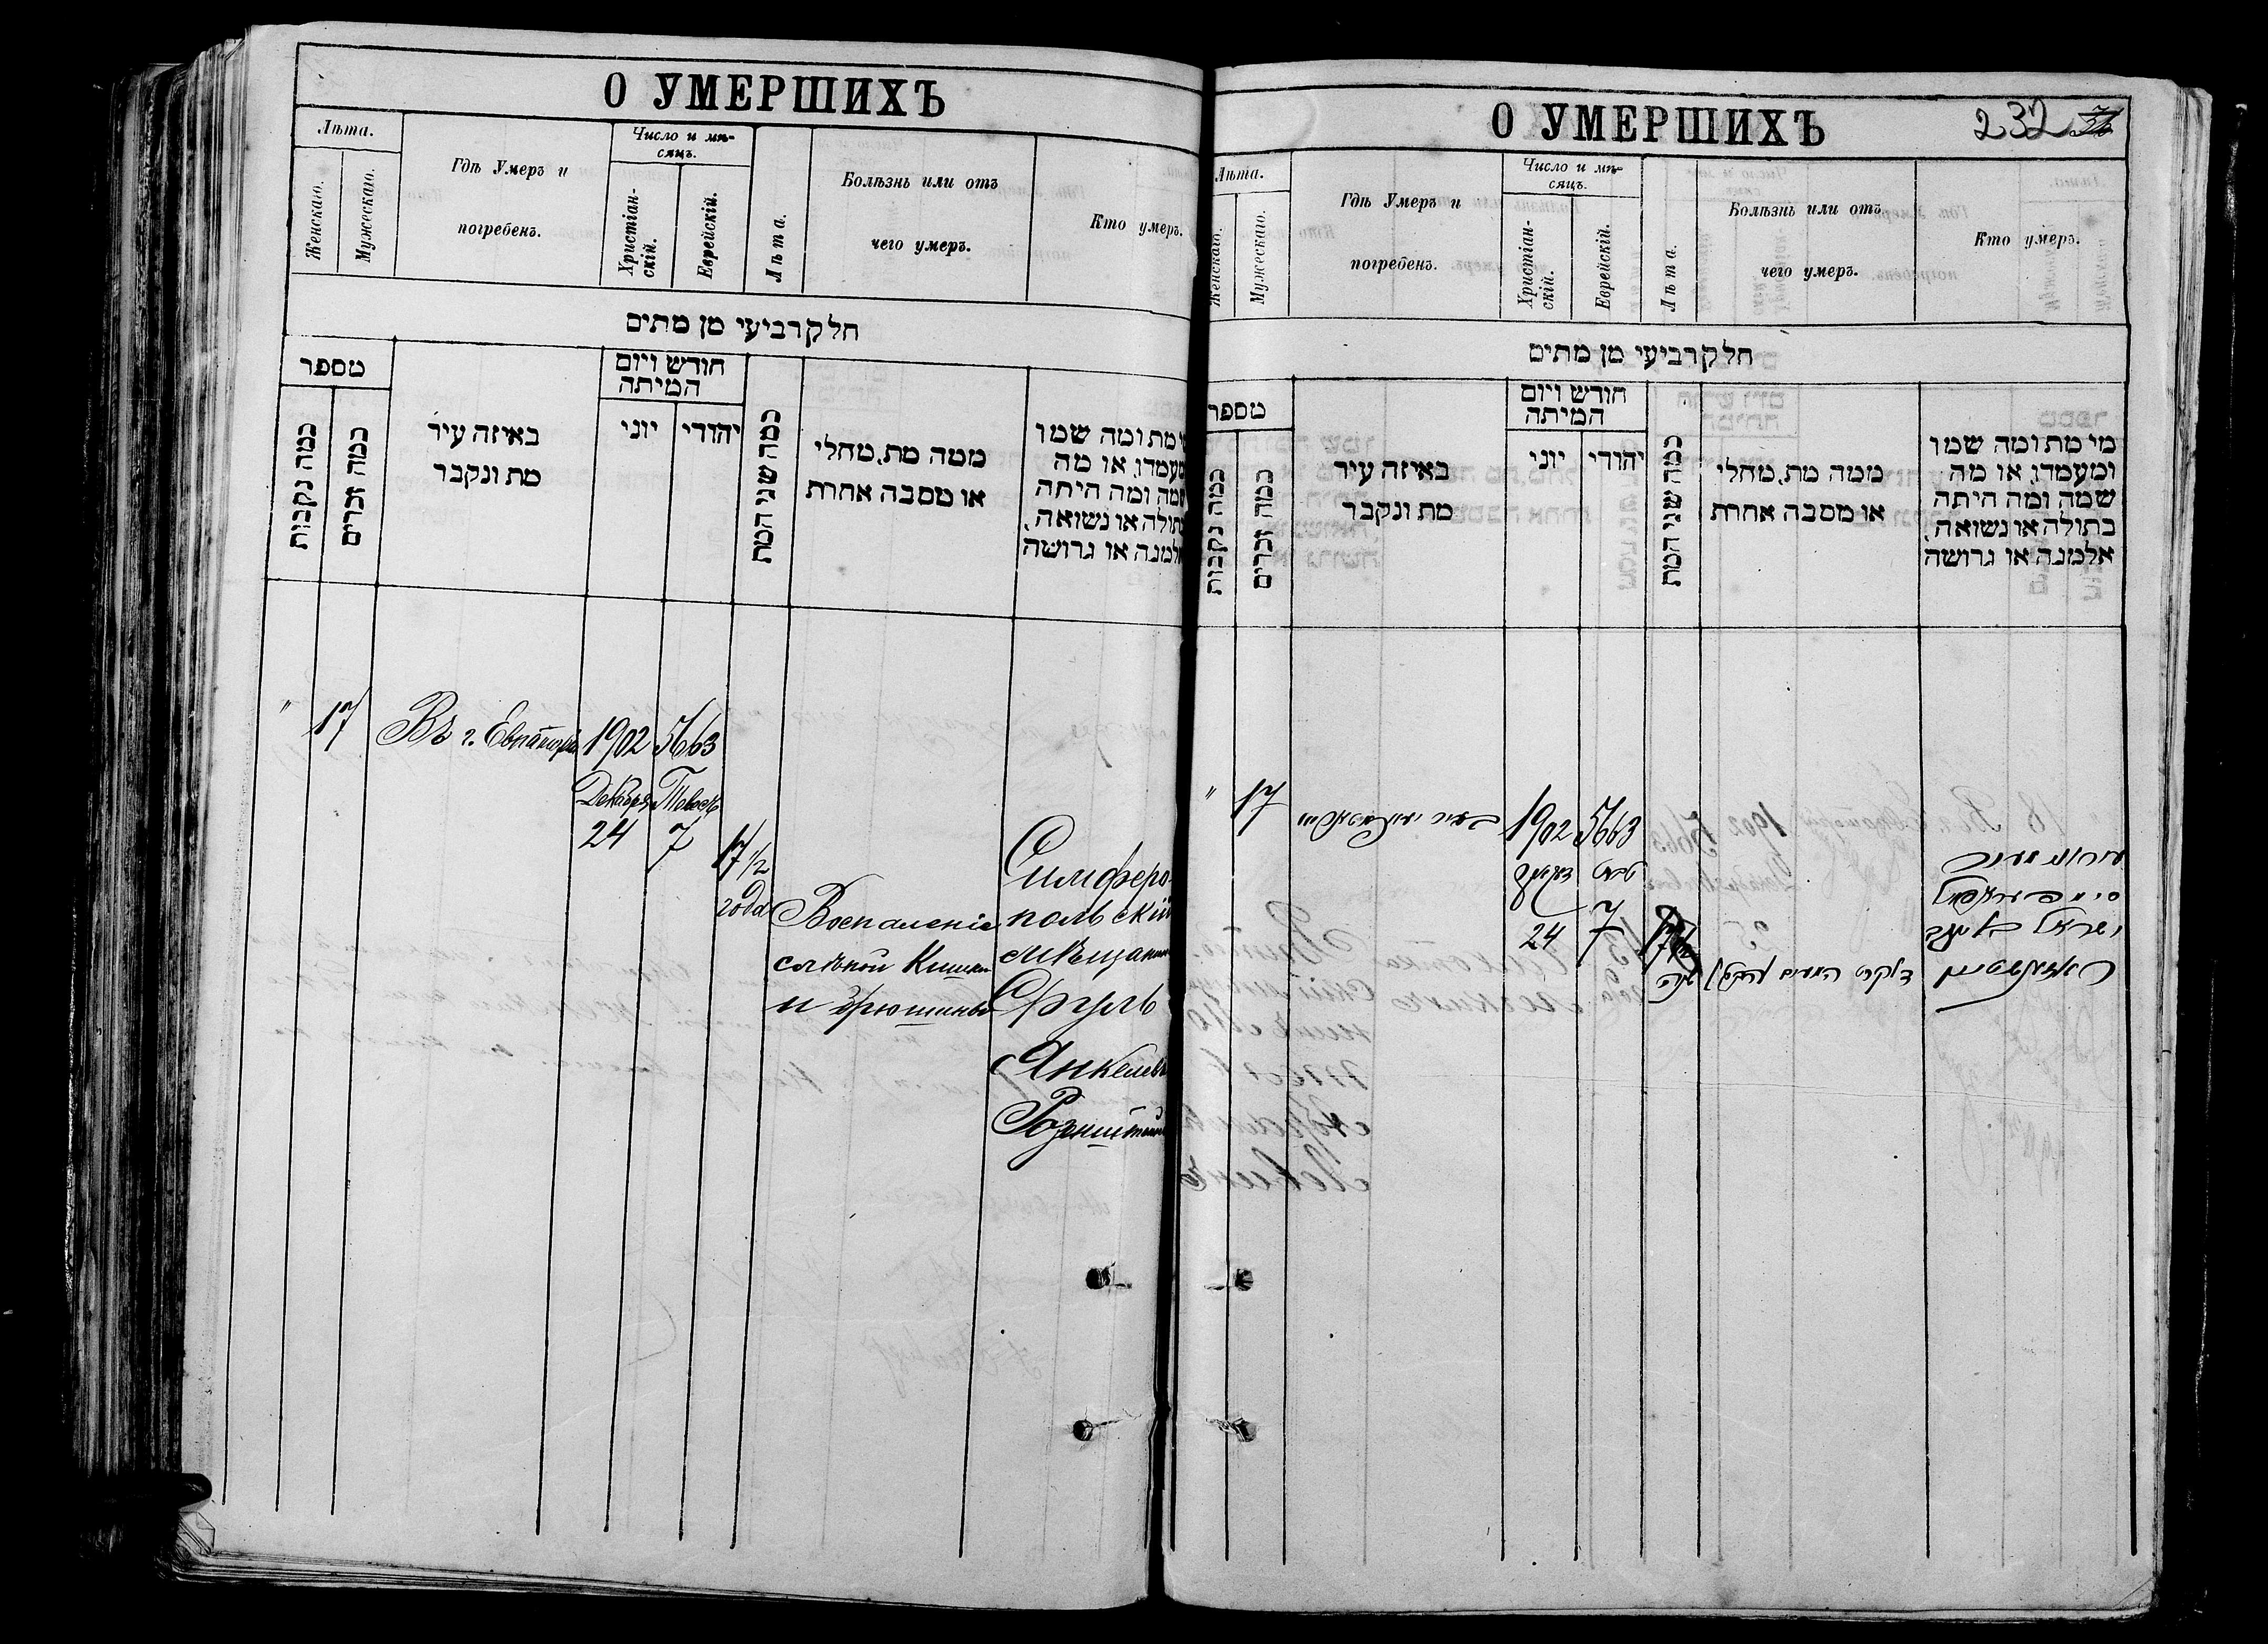 О УМЕРШИХЪ
Лѣта.
Женскаго.
Мужескаго.
Гдѣ Умеръ и
погребенъ.
Число и мѣ-
сяцъ.
Христіан-
скій.
Еврейскій.
Лѣта.
Болѣзнь или отъ
чего умеръ.
Кто умеръ.
חלק רביעי מן מתים
מספר
כמה נקבות
כמה זכרים
באיזה עיר
מת ונקבר
חודש ויום
המיתה
יוני
יהודי
כמה שני המת
ממה מת, מחלי
או מסבה אחרת
מת ומה שמו
ומעמדו, או מה
שמה ומה היתה
בתולה או נשואה,
אלמנה או גרושה
" 17 Въ г. 1902 5663
Декабря Тевесъ
24 7
17 1/2
года
Воспаленіе
слѣпой Кишки
и брюшины
Симферо-
польскій
мѣщанинъ
Сруль
Янкелевъ
Розенштейнъ
О УМЕРШИХЪ
232
Лѣта.
Женскаго.
Мужескаго.
Гдѣ Умеръ и
погребенъ.
Число и мѣ-
сяцъ.
Христіан-
скій.
Еврейскій.
Лѣта.
Болѣзнь или отъ
чего умеръ.
Кто умеръ.
חלק רביעי מן מתים
מספר
כמה נקבות
כמה זכרים
באיזה עיר
מת ונקבר
חודש ויום
המיתה
יוני
יהודי
כמה שני המת
ממה מת, מחלי
או מסבה אחרת
מי מת ומה שמו
ומעמדו, או מה
שמה ומה היתה
בתולה או נשואה,
אלמנה או גרושה
" 17
1902 5663
טבת
24 7
דלקת המעים
ישראל בן יעקב